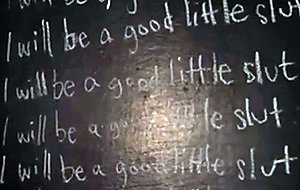 I will be a good little slut
I will be a good little slut
I will be a g le slut
I will be a good little slut